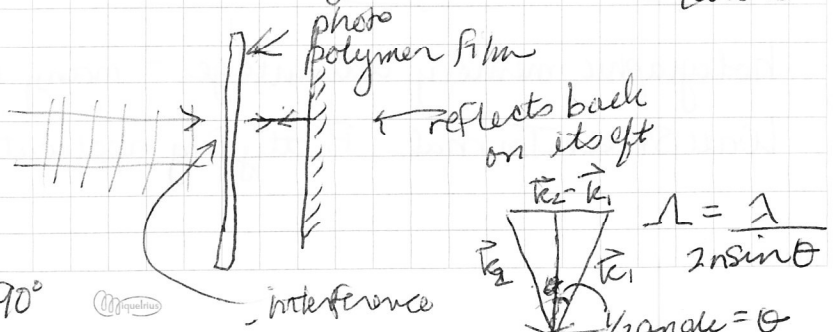 photo
polymer film
reflects back
on itself
k⃗₂-k⃗₁
Λ = λ / 2n sinθ
k⃗₂
k⃗₁
90°
Miquelrius
interference
½ angle = θ